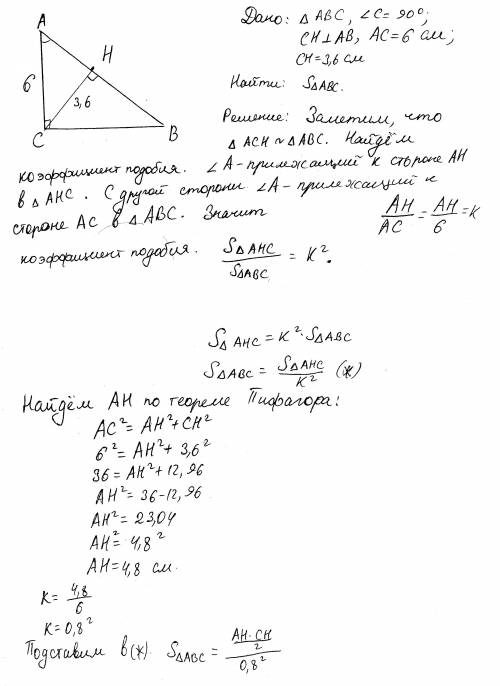 A
H
6
3,6
C
B
Дано: △ABC, ∠C=90°;
CH⊥AB, AC=6 см;
CH=3,6 см
Найти: S△ABC.
Решение: Заметим, что
△ACH ~ △ABC. Найдём
коэффициент подобия. ∠A-прилежащий к стороне AH
в △AHC. С другой стороны ∠A-прилежащий к
стороне AC в △ABC. Значит AH/AC = AH/6 = K
коэффициент подобия. S△AHC/S△ABC = K².
S△AHC = K²·S△ABC
S△ABC = S△AHC/K² (ж)
Найдём AH по теореме Пифагора:
AC²=AH²+CH²
6²=AH²+3,6²
36=AH²+12,96
AH²=36-12,96
AH²=23,04
AH²=4,8²
AH=4,8 см.
K=4,8/6
K=0,8²
Подставим в(ж). S△ABC = (AH·CH/2)/0,8²